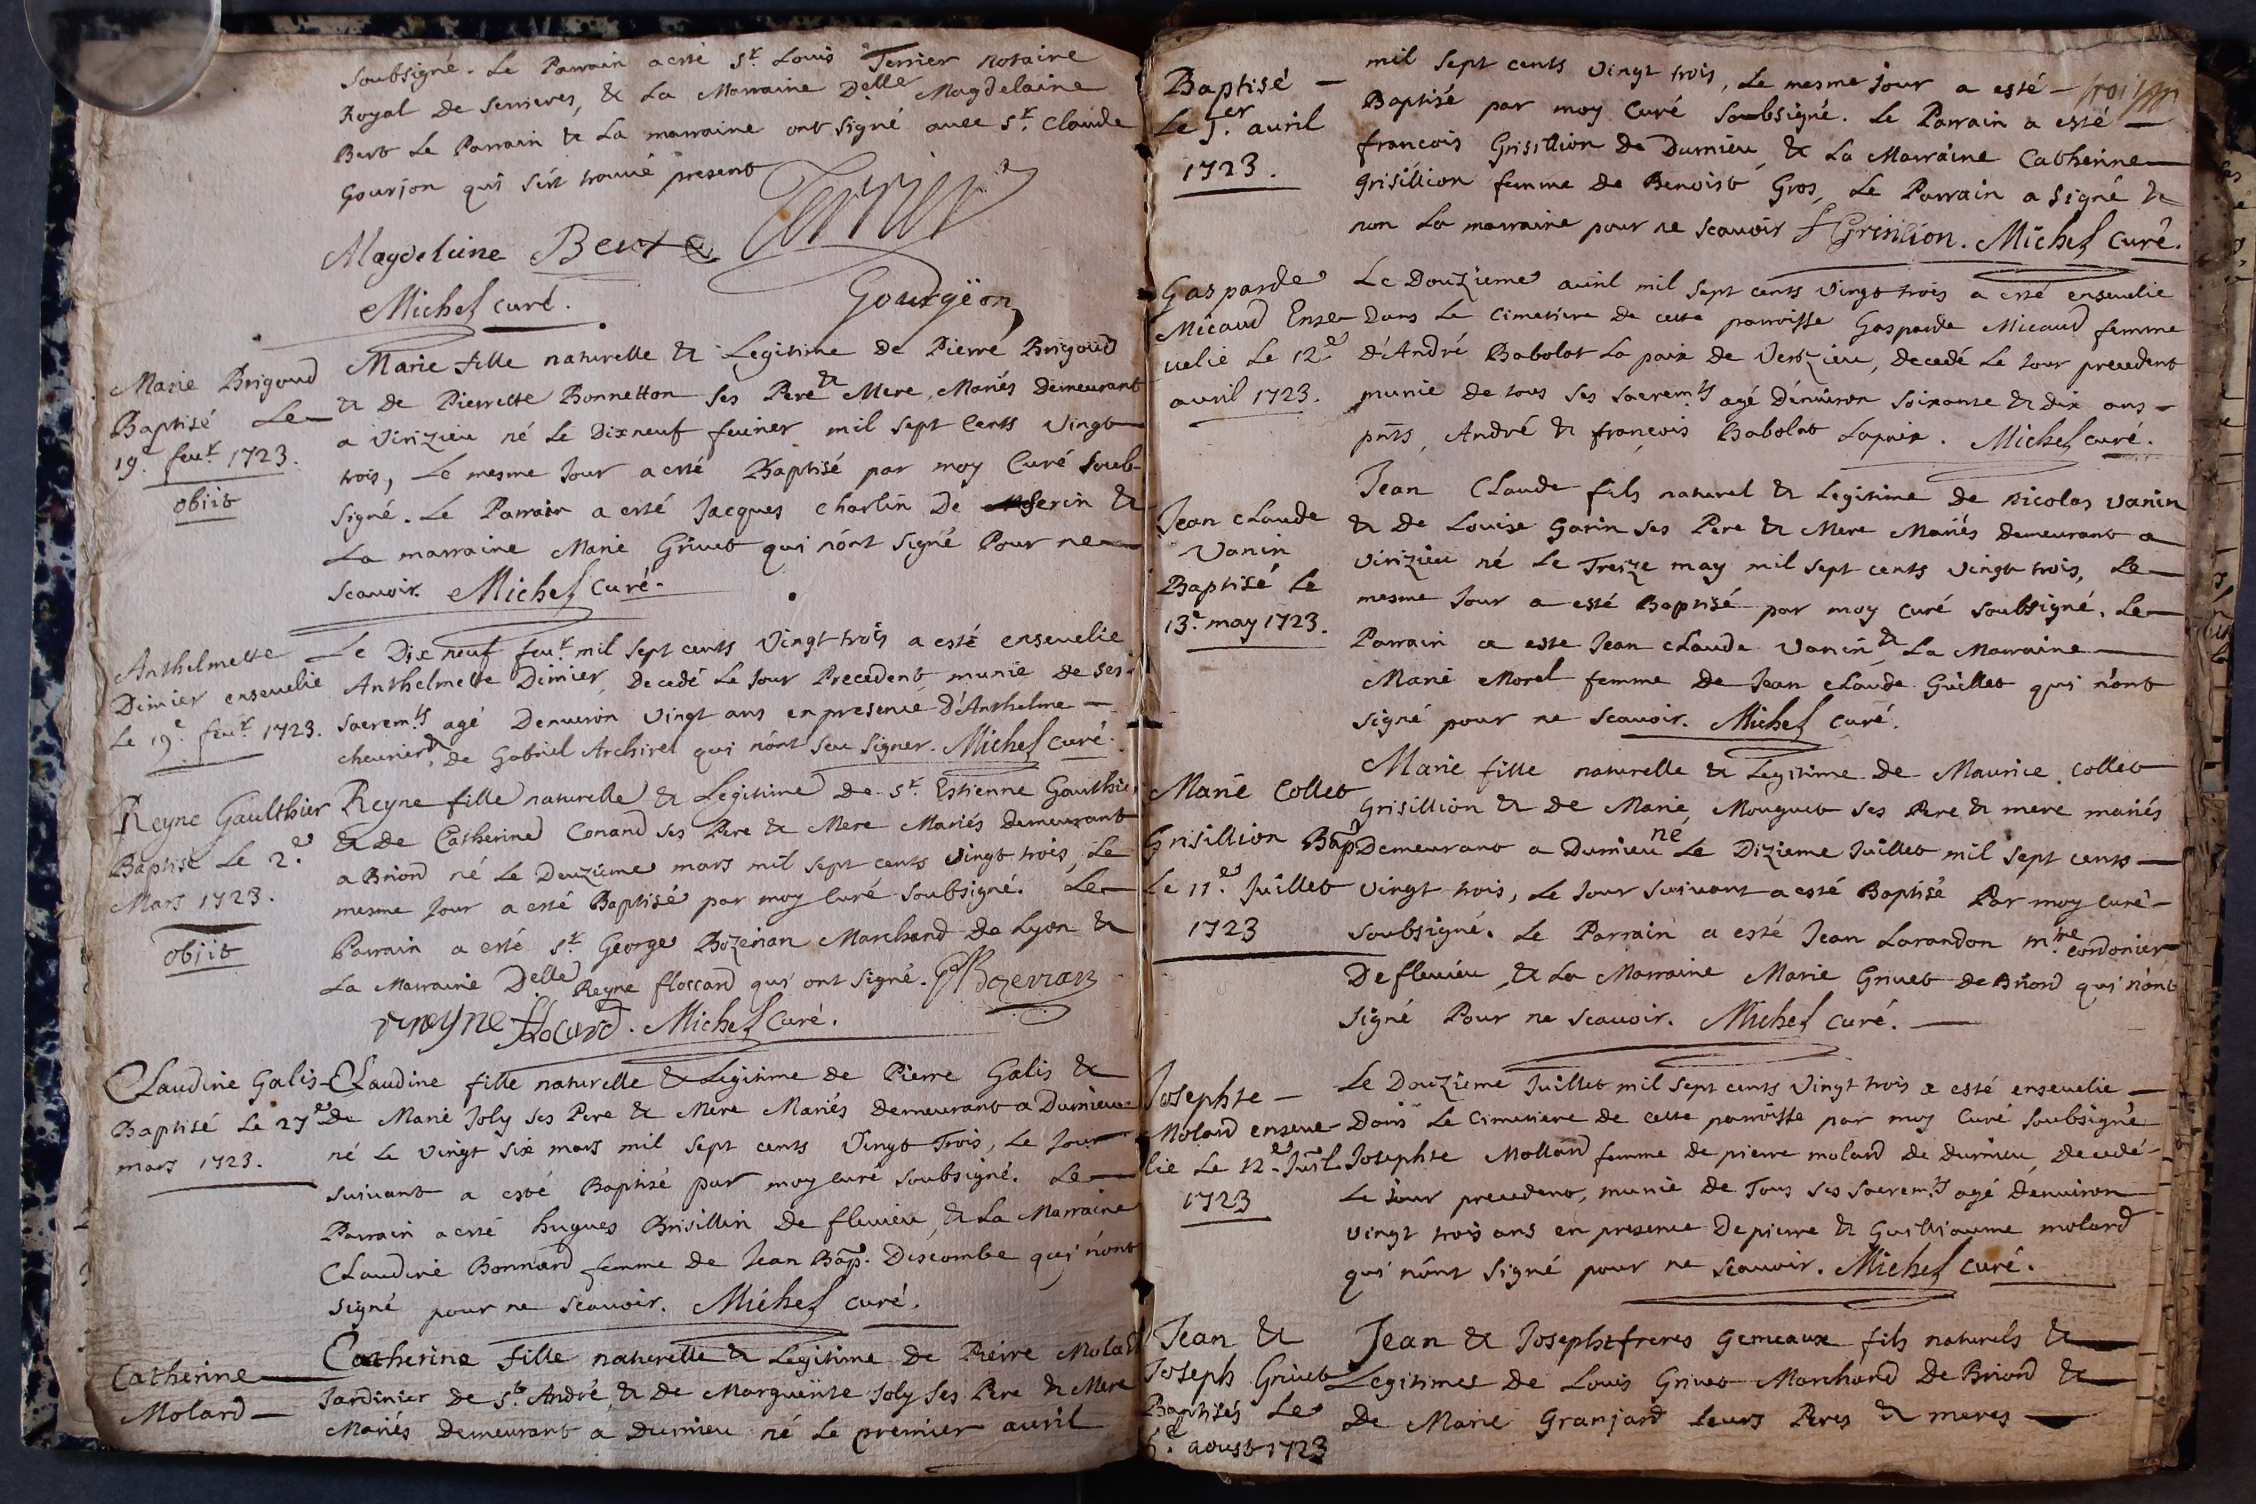 soubsigné. Le Parrain a esté Sr. Louis Terrier notaire
Royal de Serrieres, & La Marraine Delle Magdelaine
Bert Le Parrain & La marraine ont signé avec Sr. Claude
Gourjon qui s'ést trouvé present
Terrier
Magdeleine Bert
Gourgëon
Michel curé.
Marie Brigoud
Baptisé Le
19e feur. 1723.
obiit
Marie fille naturelle & Legitime de Pierre Brigoud
& de Pierrette Bonnetton ses Pere & Mere, Mariés Demeurant
a Virizieu né Le Dixneuf feurier mil sept Cents Vingt
trois, Le mesme Jour a esté Baptisé par moy Curé Soub
signé. Le Parrain a esté Jacques Charlin De Serin &
La marraine Marie Grivet qui n'ónt signé Pour ne
scauoir. Michel curé.
Anthelmette
Dimier enseuelie
Le 19e. feur. 1723.
Le Dix neuf feur. mil sept cents Vingt trois a esté enseuelie
Anthelmette Dimier, Decedé Le Jour Precedent munie de ses
sacremts agé Denuiron Vingt ans en presence d'Anthelme
cheurier, & de Gabriel Archirel qui n'ónt sçu signer. Michel curé.
Reyne Gaulthier
Baptisé Le 2.e
Mars 1723.
obiit
Reyne fille naturelle & Legitime De Sr. Estienne Gaulthier
& de Catherine Conand ses Pere & Mere Mariés Demeurant
a Briord né le Deuzieme mars mil sept cents Vingt trois, Le
mesme Jour a esté Baptisé par moy curé soubsigné. Le
Parrain a esté Sr. George Bozenan Marchand de Lyon &
La Marraine Delle Reyne floccard qui ont signé. GBozenan
reyne flocard. Michel Curé.
Claudine Galis
Baptisé Le 27e
mars 1723.
Claudine fille naturelle & Legitime de Pierre Galis &
De Marie Joly ses Pere & Mere Mariés demeurant a Durnieu
né Le vingt six mars mil sept cents Vingt Trois, Le Jour
suivant a esté Baptisé par moy curé soubsigné. Le
Parrain a esté hugues Brisillin De flevieu, & La Marraine
Claudine Bonnard femme de Jean Bap. Descombe qui n'ont
signé pour ne scauoir. Michel curé.
Catherine
Molard
Catherine fille naturelle & Legitime De Pierre Molard
Jardinier de St. André, & de Margueritte Joly ses Pere & Mere
Mariés Demeurant a Durnieu né Le premier auril
Baptisé
Le 1er. auril
1723.
mil sept cents Vingt trois, Le mesme Jour a esté
Baptisé par moy Curé soubsigné. Le Parrain a esté
francois Grisillion De Durnieu, & La Marraine Catherine
Grisillion femme de Benoist Gros, Le Parrain a signé &
non La marraine pour ne scauoir f Grisilion. Michel curé.
Gasparde
Micaud Ense
uelie Le 12e
auril 1723.
Le Douzieme auril mil sept cents Vingt trois a esté enseuelie
Dans Le Cimetiere de cette parroisse Gasparde Micaud femme
d'André Babolat La paix de Verizieu, decedé Le Jour precedent
munie de tous ses sacremts agé d'énuiron soixante & dix ans
pnts, André & françois Babolat Lapaix. Michel curé.
Jean Claude
Vanin
Baptisé Le
13e. may 1723.
Jean Claude fils naturel & Legitime de nicolas Vanin
& de Louise Garin ses Pere & Mere Mariés demeurant a
Virizieu né Le Treize may mil sept cents Vingt trois, Le
mesme Jour a esté Baptisé par moy curé soubsigné. Le
Parrain a este Jean Claude Vanin, & La Marraine
Marie Morel femme de Jean Claude Guillet qui n'ónt
signé pour ne scauoir. Michel curé.
Marie Collet
Grisillion Bap
Le 11.e Juillet
1723
Marie fille naturelle & Legitime de Maurice Collet
Grisillion & de Marie Mouguet ses Pere & mere mariés
Demeurant a Durnieu né Le Dizieme Juillet mil sept cents
Vingt trois, Le Jour suivant a esté Baptisé Par moy curé
soubsigné. Le Parrain a esté Jean Larandon mtre. cordonier
De flevieu, & La Marraine Marie Grivet de Briord qui n'ónt
signé Pour ne scauoir. Michel curé.
Josephte
Molard enseue
lie Le 12.e Juil.
1723
Le Douzieme Juillet mil sept cents Vingt trois a esté enseuelie
Dans Le Cimetiere de cette parroisse par moy Curé soubsigné
Josephte Mollard femme de pierre molard de durnieu, decedé
Le Jour precedent, munie de Tous ses sacremts agé denuiron
vingt trois ans en presence De pierre & Guilliaume molard
qui n'ónt signé pour ne scauoir. Michel curé.
Jean &
Joseph Grivet
Baptisés Le
6.e aoust 1723
Jean & Joseph freres Gemeaux fils naturels &
Legitimes de Louis Grivet Marchand De Briord &
de Marie Granjard Leurs Peres & meres